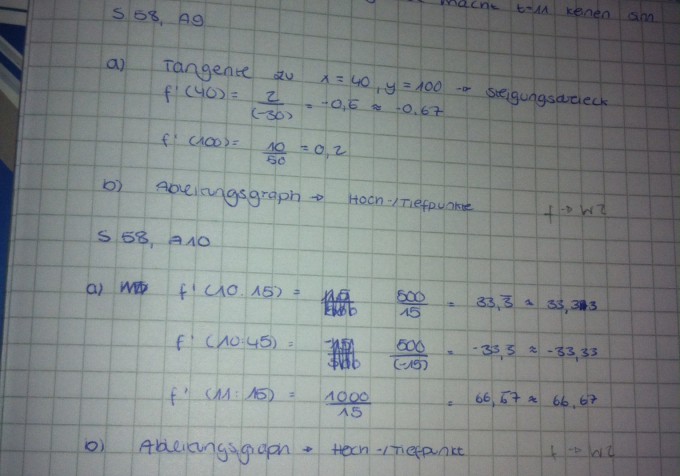 macht t=11 keinen Sinn
S 58, A9
a) Tangente zu x=40, y=100 → Steigungsdreieck
f'(40) = 2/(-30) = -0,6 ≈ -0.67
f'(100) = 10/50 = 0,2
b) Ableitungsgraph → Hoch-/Tiefpunkte f → WZ
S 58, A10
a) f'(10.15) = 500/15 = 33,3̅ ≈ 33,33
f'(10:45) = 500/(-15) = -33,3 ≈ -33,33
f'(11:15) = 1000/15 = 66,67 ≈ 66.67
b) Ableitungsgraph → Hoch-/Tiefpunkte f → WZ